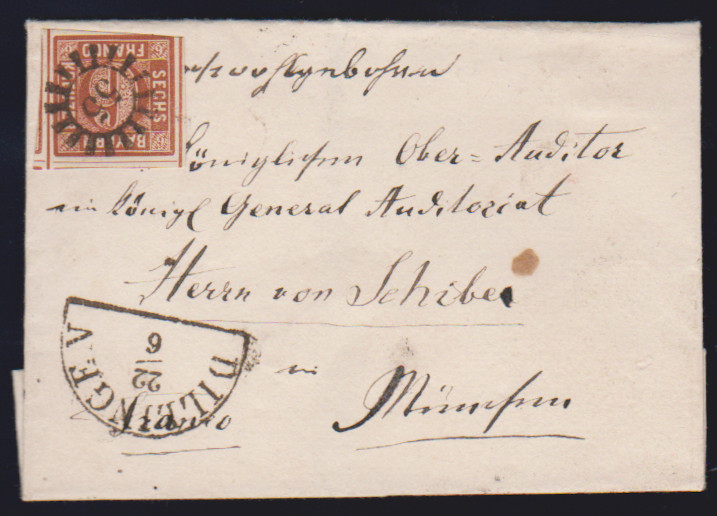 FRANCO
SECHS
BAYERN
6
Hochwohlgebohren
Königlichen Ober=Auditor
im königl General Auditoriat
Herrn von Schiber
in
München
Franco
DILLINGEN
22
6